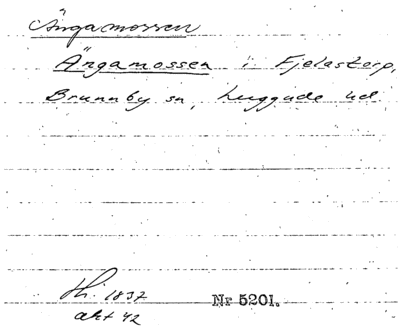 Ängamossen
Ängamossen i Fjelastorp,
Brunnby sn, Luggude hd
Hi. 1837
akt 42
Nr 5201.